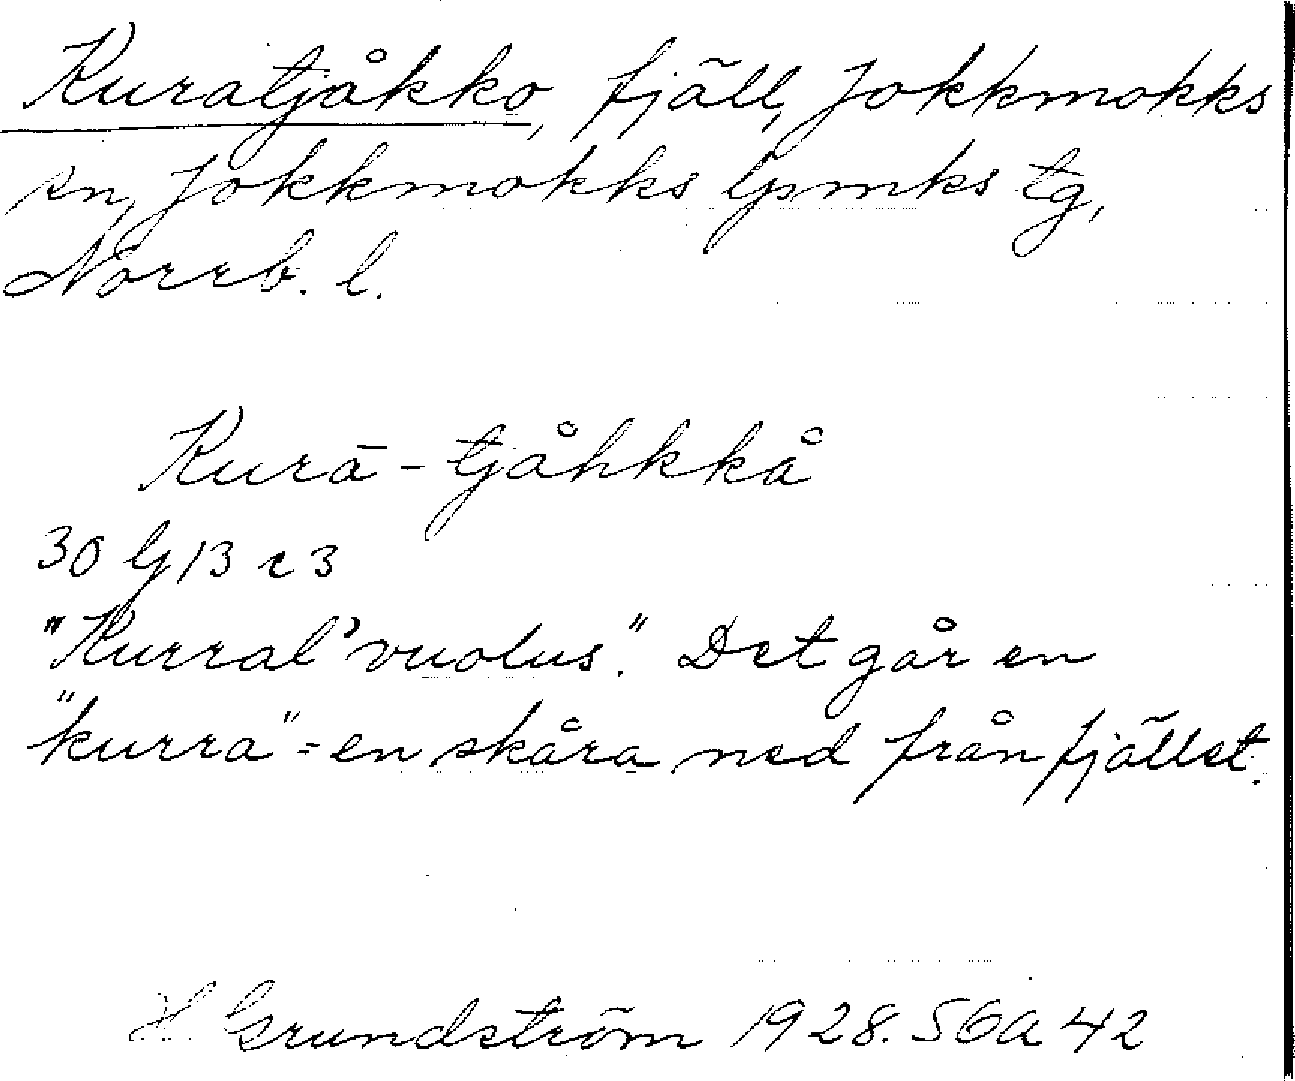 Kuratjåkko, fjäll, Jokkmokks
sn, Jokkmokks lpmks tg,
Norrb. l.
Kurā-tjåhkkå
30 G 13 c 3
"Kurral'vuolus". Det går en
"kurra" = en skåra ned från fjället.
H. Grundström 1928. SOA 42